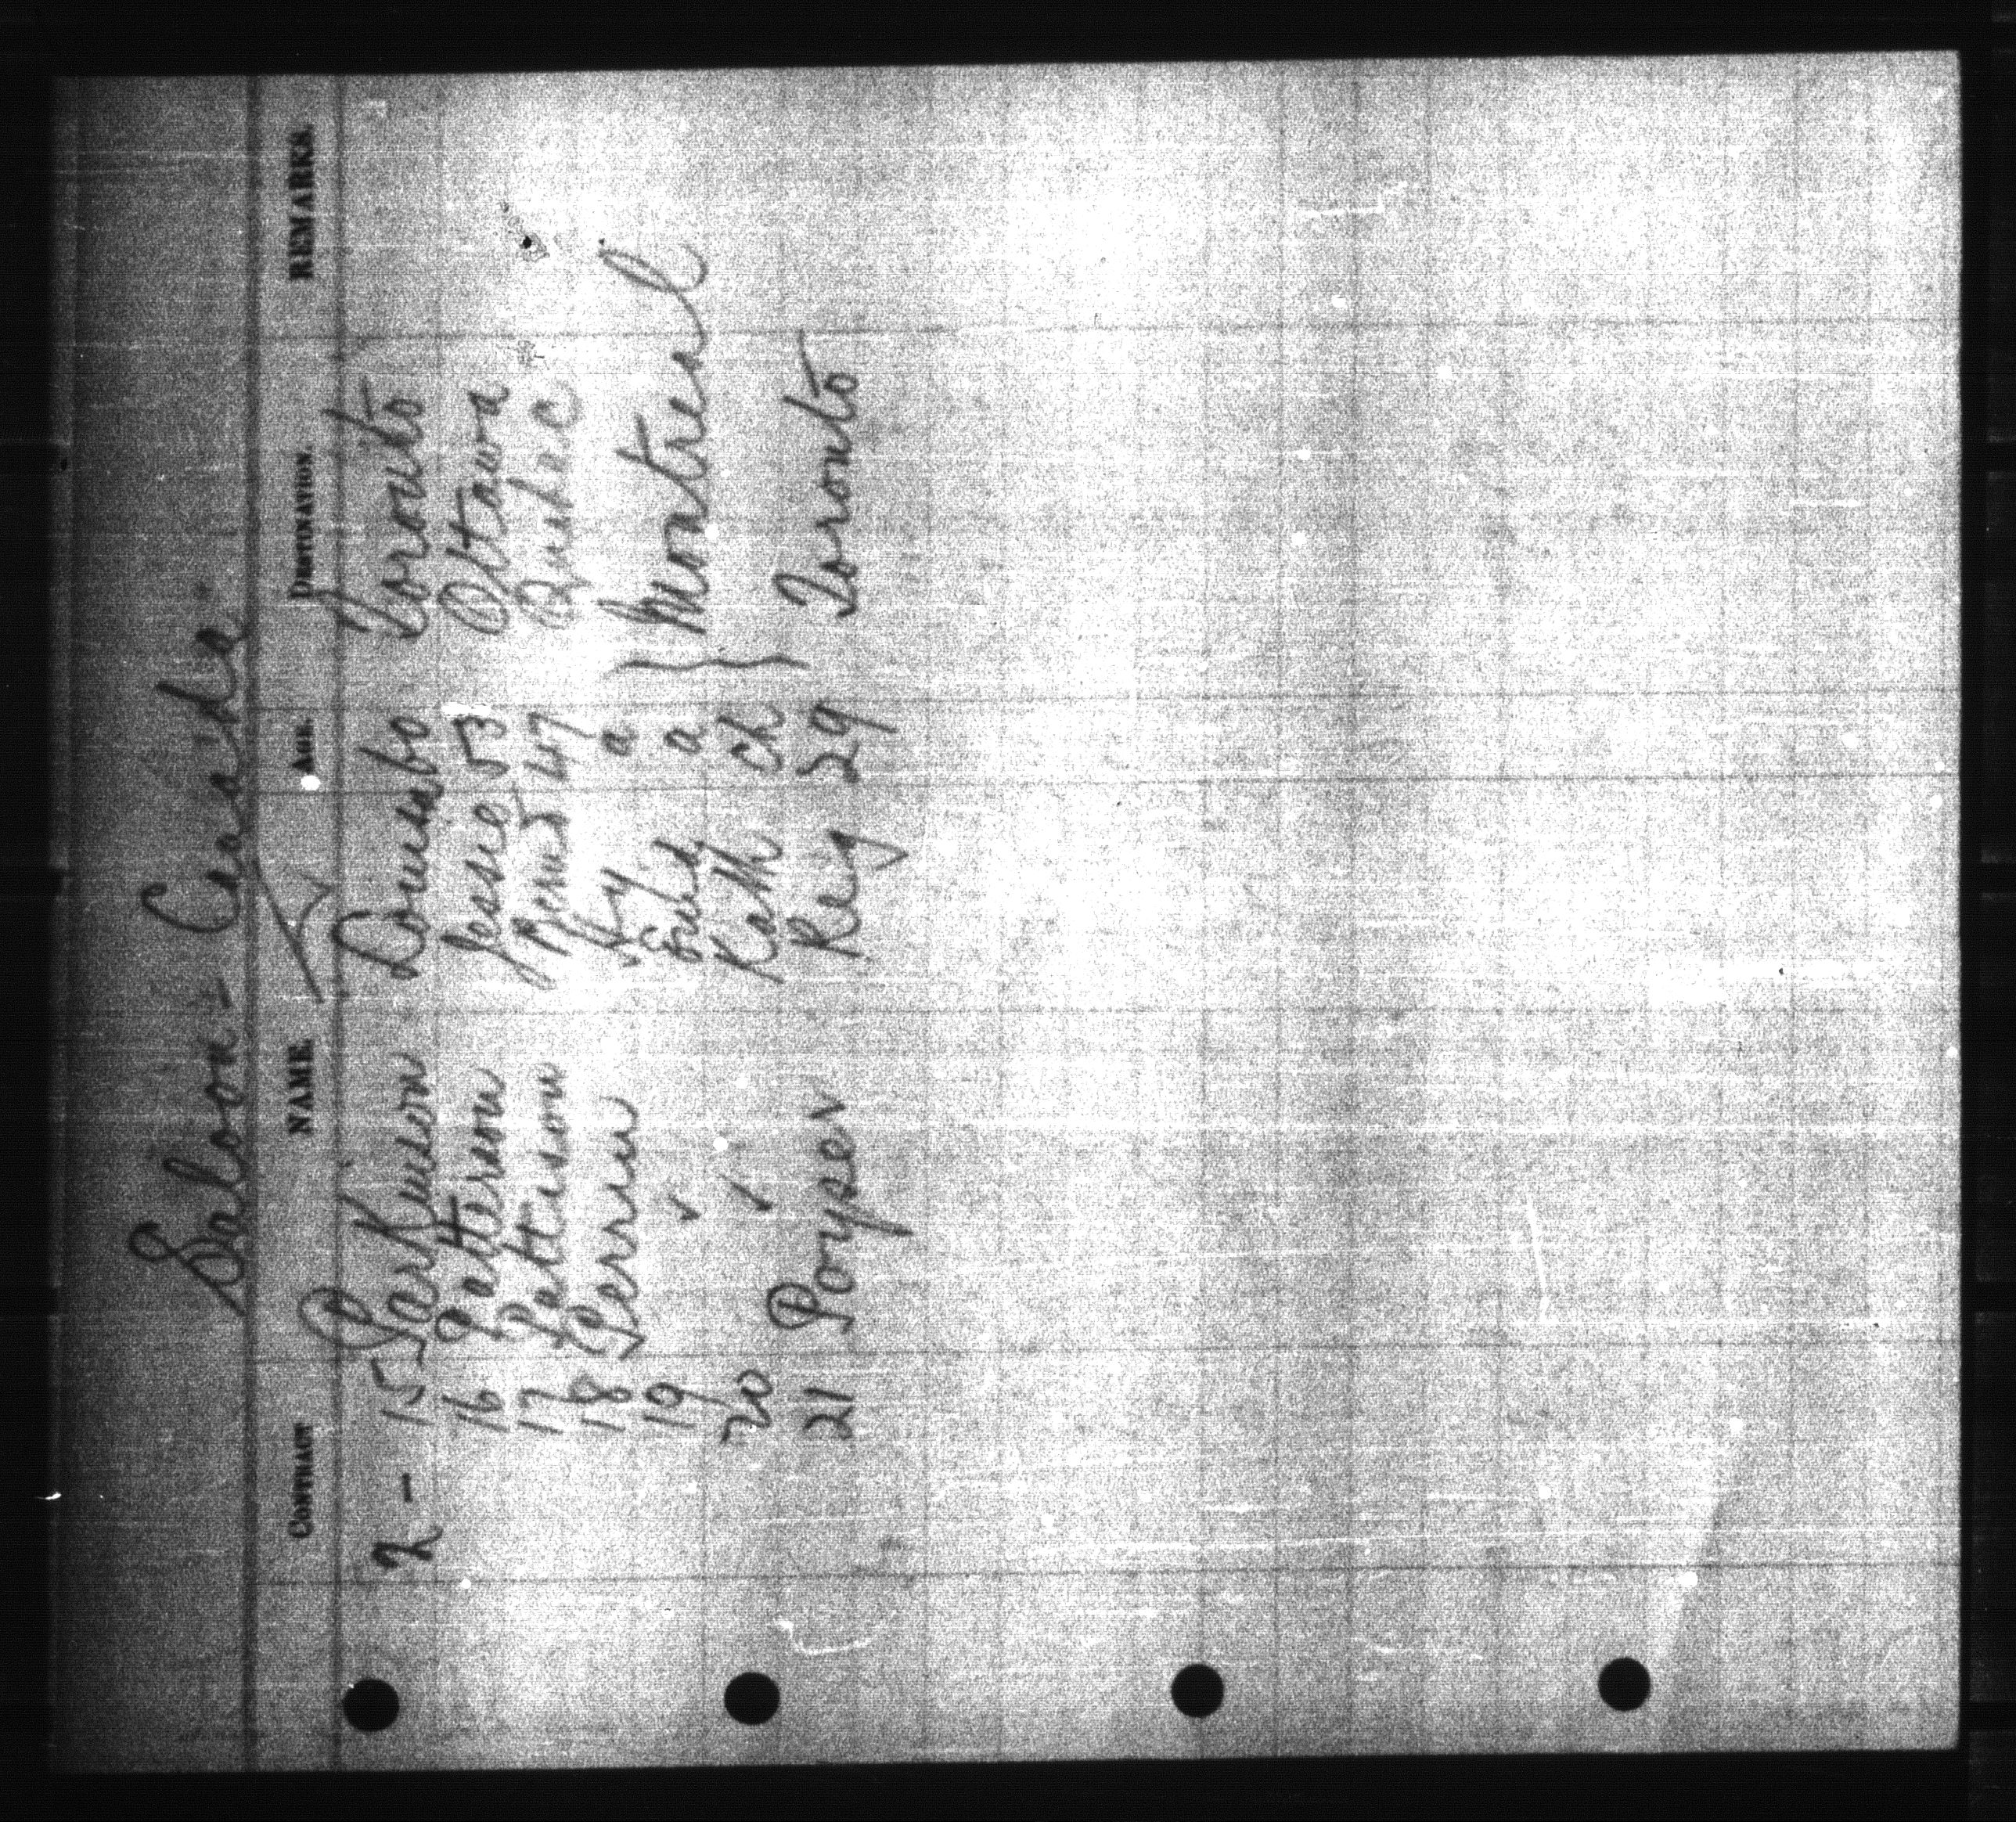 Saloon - Canada -
CONTRACT NAME AGE. DESTINATION. REMARKS.
2 - 15 Parkinson Toronto
16 Patterson Jessie 53 Ottawa
17 Pattison 47 Quebec
18 Perrin Hy a
19 ✓ a } Montreal
20 ✓ Kath ch
21 Poyser Reg 29 Toronto